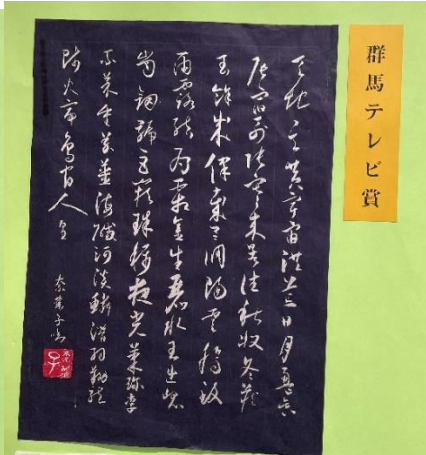 群馬テレビ賞
天地玄黄宇宙洪荒日月盈昃
辰宿列張寒来暑往秋収冬蔵
閏餘成歳律呂調陽雲騰致
雨露結為霜金生麗水玉出崑
崗剣号巨闕珠称夜光菓珍李
柰菜重芥薑海鹹河淡鱗潜羽翔龍
師火帝鳥官人皇